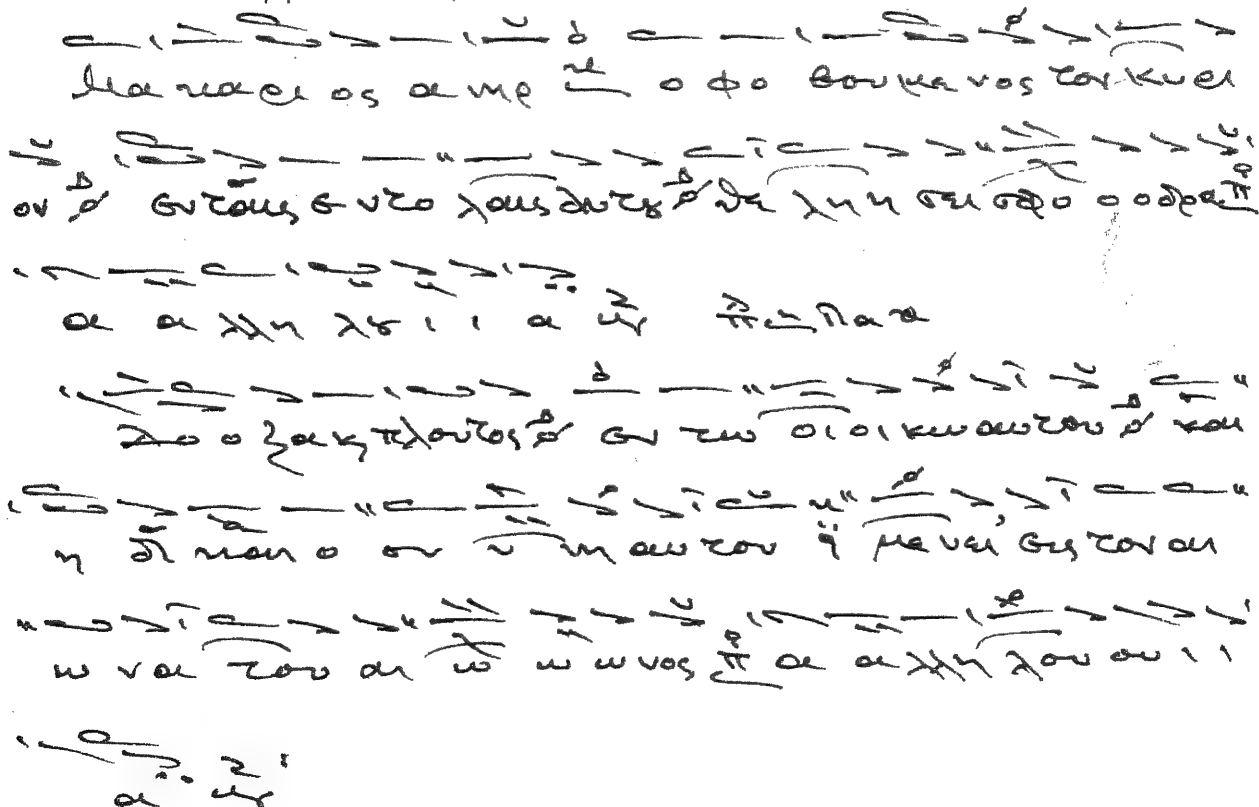 Μα κα ρι ος α νηρ ο φο βου με νος τον Κυ ρι
ον εν ταις εν το λαις αυτȣ θε λη η σει σφο ο ο δρα
α α λλη λȣ ι ι α
Δο ο ξα κ πλουτος εν τω οι οι κω αυτου και
η δι και ο συ υ νη αυ του μενει εις τον αι
ω να του αι ω ω ω νος α α λλη λου ου ι ι
α